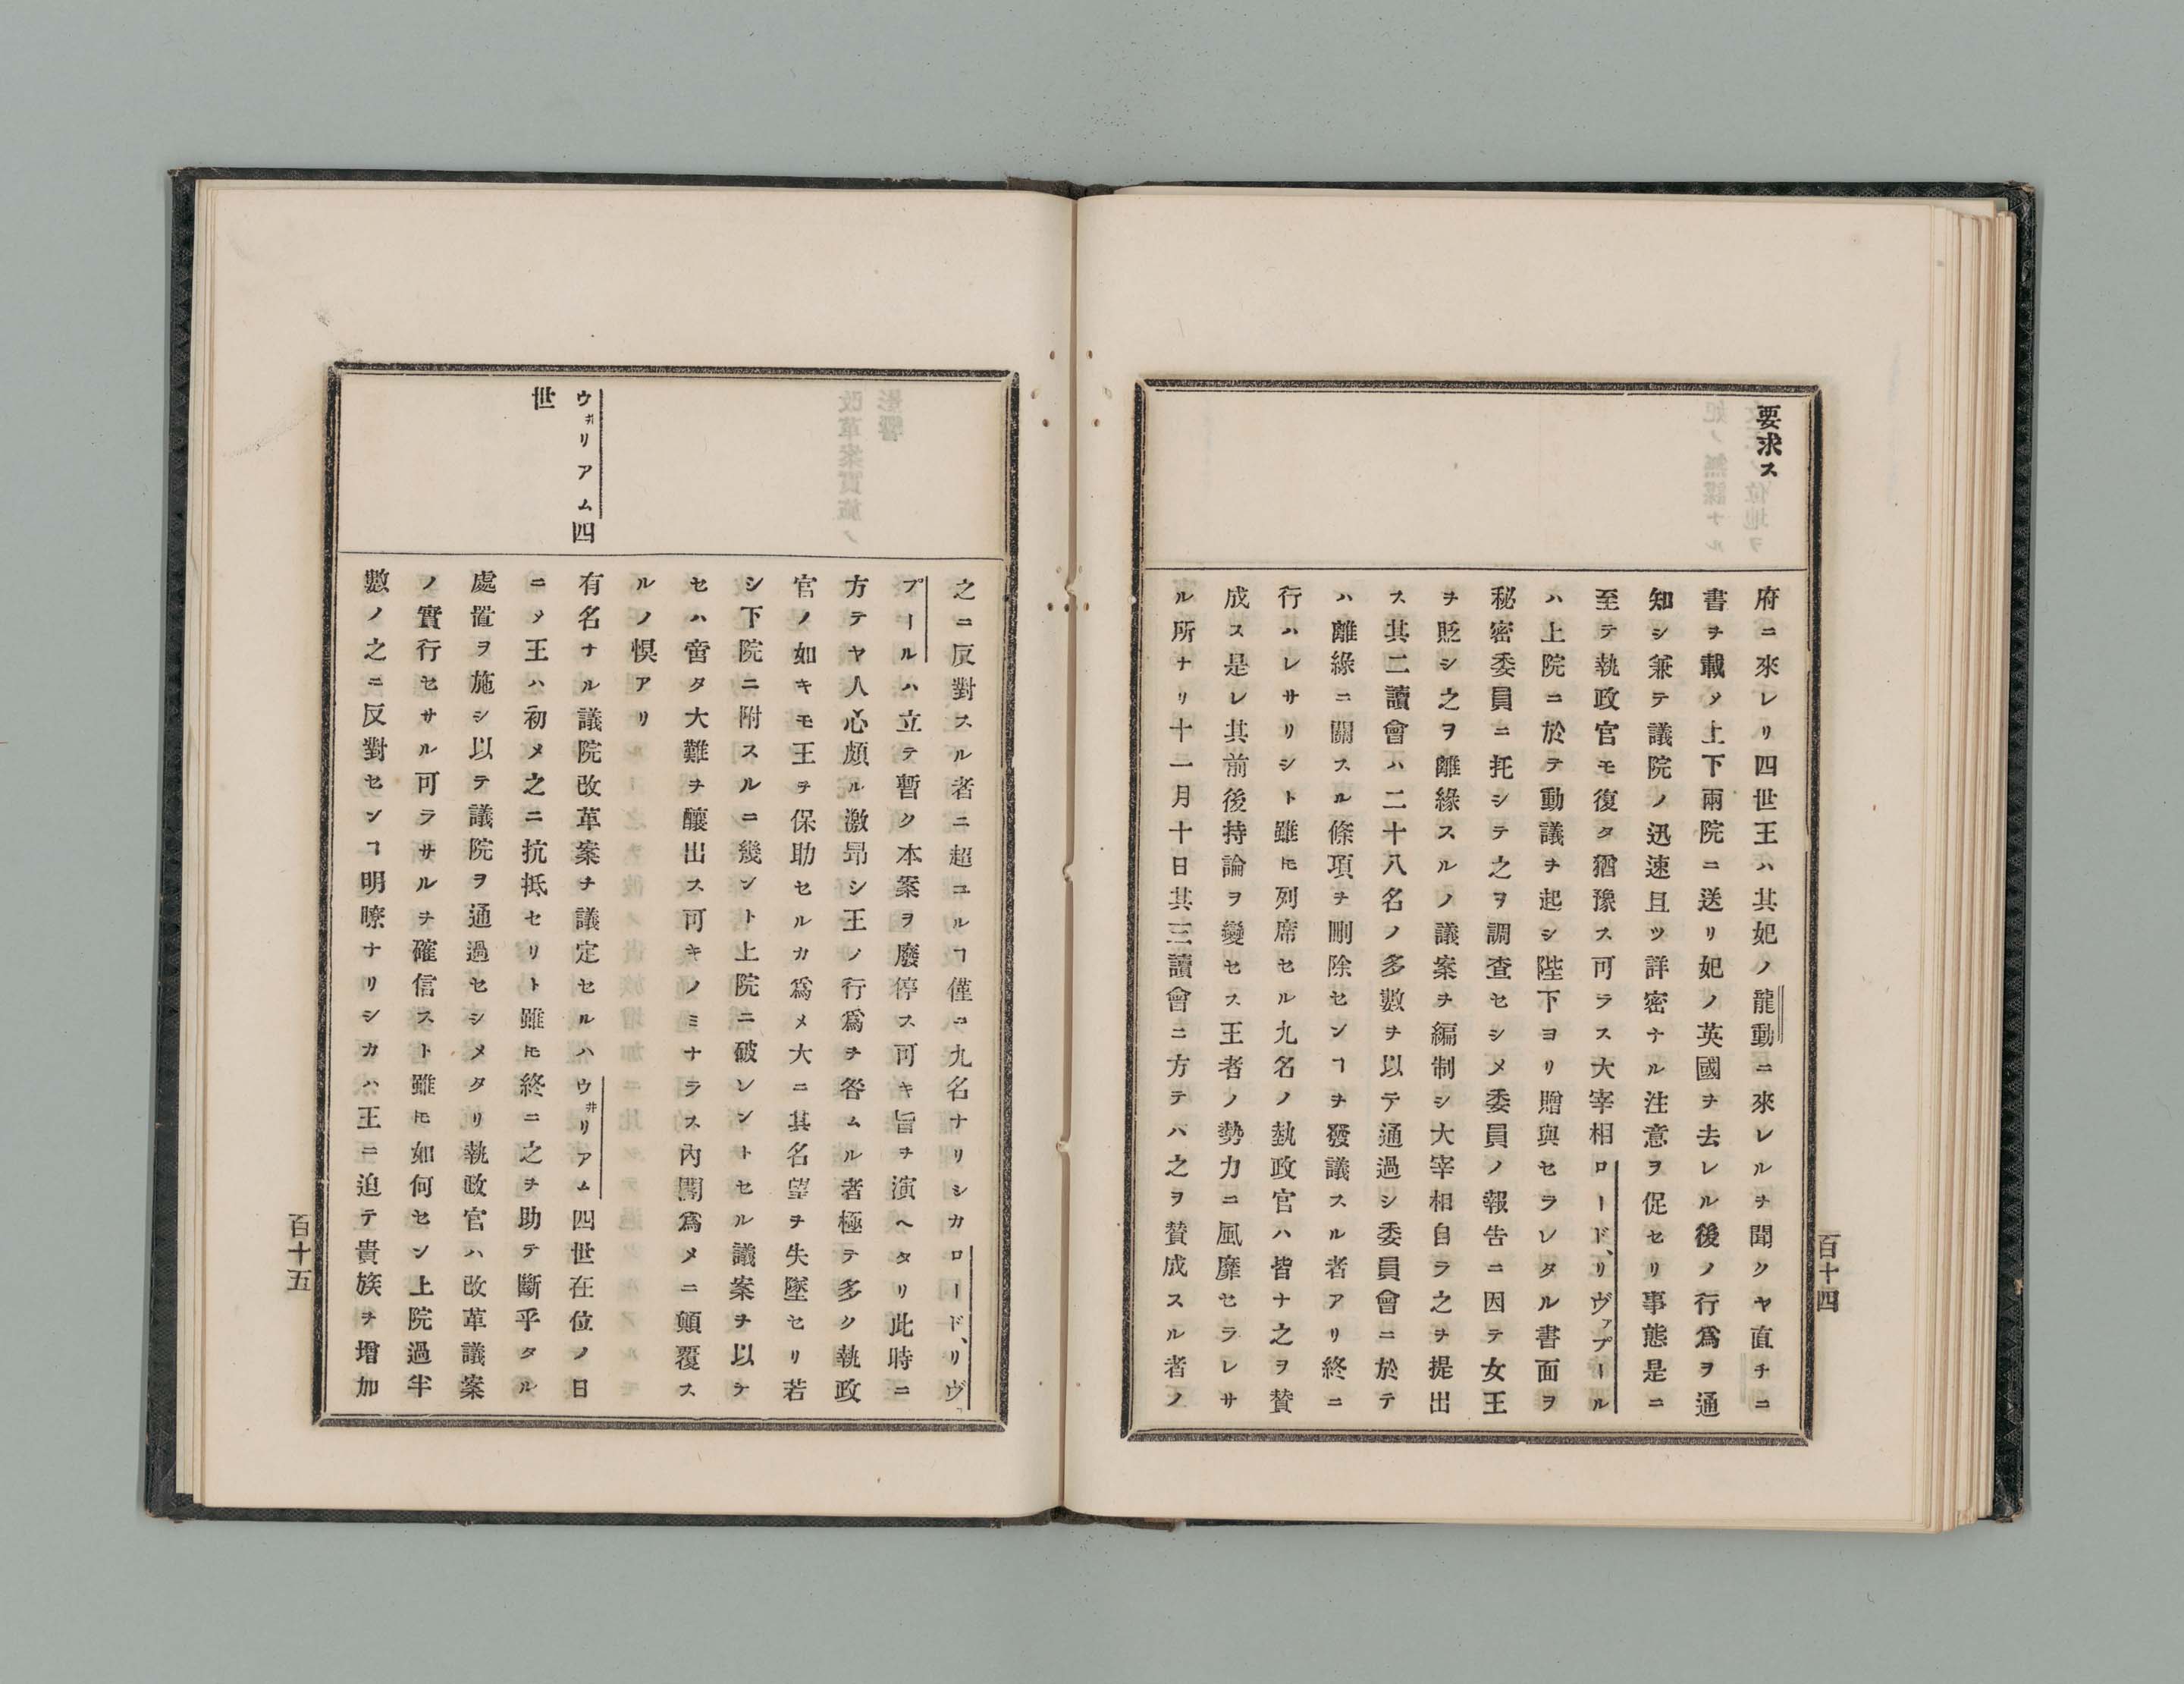 要求ス
府ニ來レリ四世王ハ其妃ノ龍動ニ來レルヲ聞クヤ直チニ
書ヲ載メ上下兩院ニ送リ妃ノ英國ヲ去レル後ノ行爲ヲ通
知シ兼テ議院ノ迅速且ツ詳密ナル注意ヲ促セリ事態是ニ
至テ執政官モ復タ猶豫ス可ラス大宰相ロード、リヴァプール
ハ上院ニ於テ動議ヲ起シ陛下ヨリ贈與セラレタル書面ヲ
秘密委員ニ托シテ之ヲ調査セシメ委員ノ報告ニ因テ女王
ヲ貶シ之ヲ離緣スルノ議案ヲ編制シ大宰相自ラ之ヲ提出
ス其二讀會ハ二十八名ノ多數ヲ以テ通過シ委員會ニ於テ
ハ離緣ニ關スル條項ヲ刪除センヿヲ發議スル者アリ終ニ
行ハレサリシト雖𪜈列席セル九名ノ執政官ハ皆ナ之ヲ賛
成ス是レ其前後持論ヲ變セス王者ノ勢力ニ風靡セラレサ
ル所ナリ十一月十日其三讀會ニ方テハ之ヲ賛成スル者ノ
百十四
ウ井リアム四
世
之ニ反對スル者ニ超ユルヿ僅ニ九名ナリシカロード、リヴァ
プールハ立テ暫ク本案ヲ廢停ス可キ旨ヲ演ヘタリ此時ニ
方テヤ人心頗ル激昂シ王ノ行爲ヲ咎ムル者極テ多ク執政
官ノ如キモ王ヲ保助セルカ爲メ大ニ其名望ヲ失墜セリ若
シ下院ニ附スルニ幾ント上院ニ破レントセル議案ヲ以テ
セハ啻タ大難ヲ釀出ス可キノミナラス內閣爲メニ顚覆ス
ルノ惧アリ
有名ナル議院改革案ヲ議定セルハウ井リアム四世在位ノ日
ニメ王ハ初メ之ニ抗抵セリト雖𪜈終ニ之ヲ助テ斷乎タル
處置ヲ施シ以テ議院ヲ通過セシメタリ執政官ハ改革議案
ノ實行セサル可ラサルヲ確信スト雖𪜈如何セン上院過半
數ノ之ニ反對センヿ明瞭ナリシカハ王ニ迫テ貴族ヲ增加
百十五